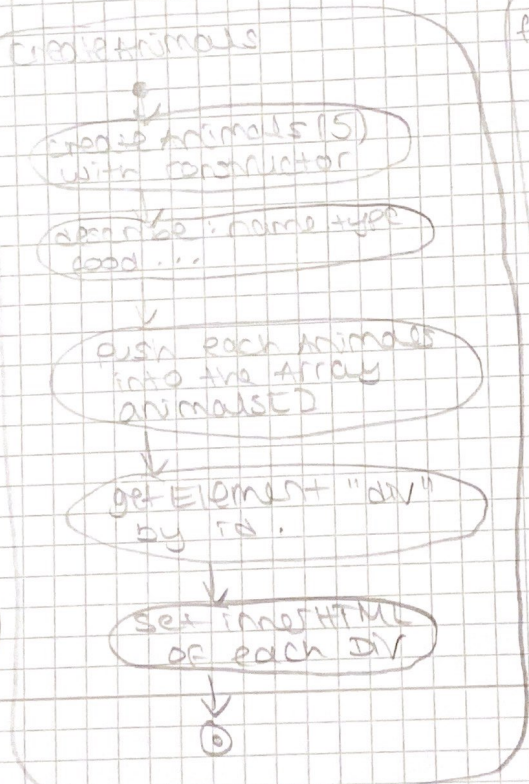 createAnimals
create Animals (5)
with constructor
describe: name, type
food ...
push each Animals
into the Array
animals[]
getElement "div"
by id.
set innerHTML
of each Div
f